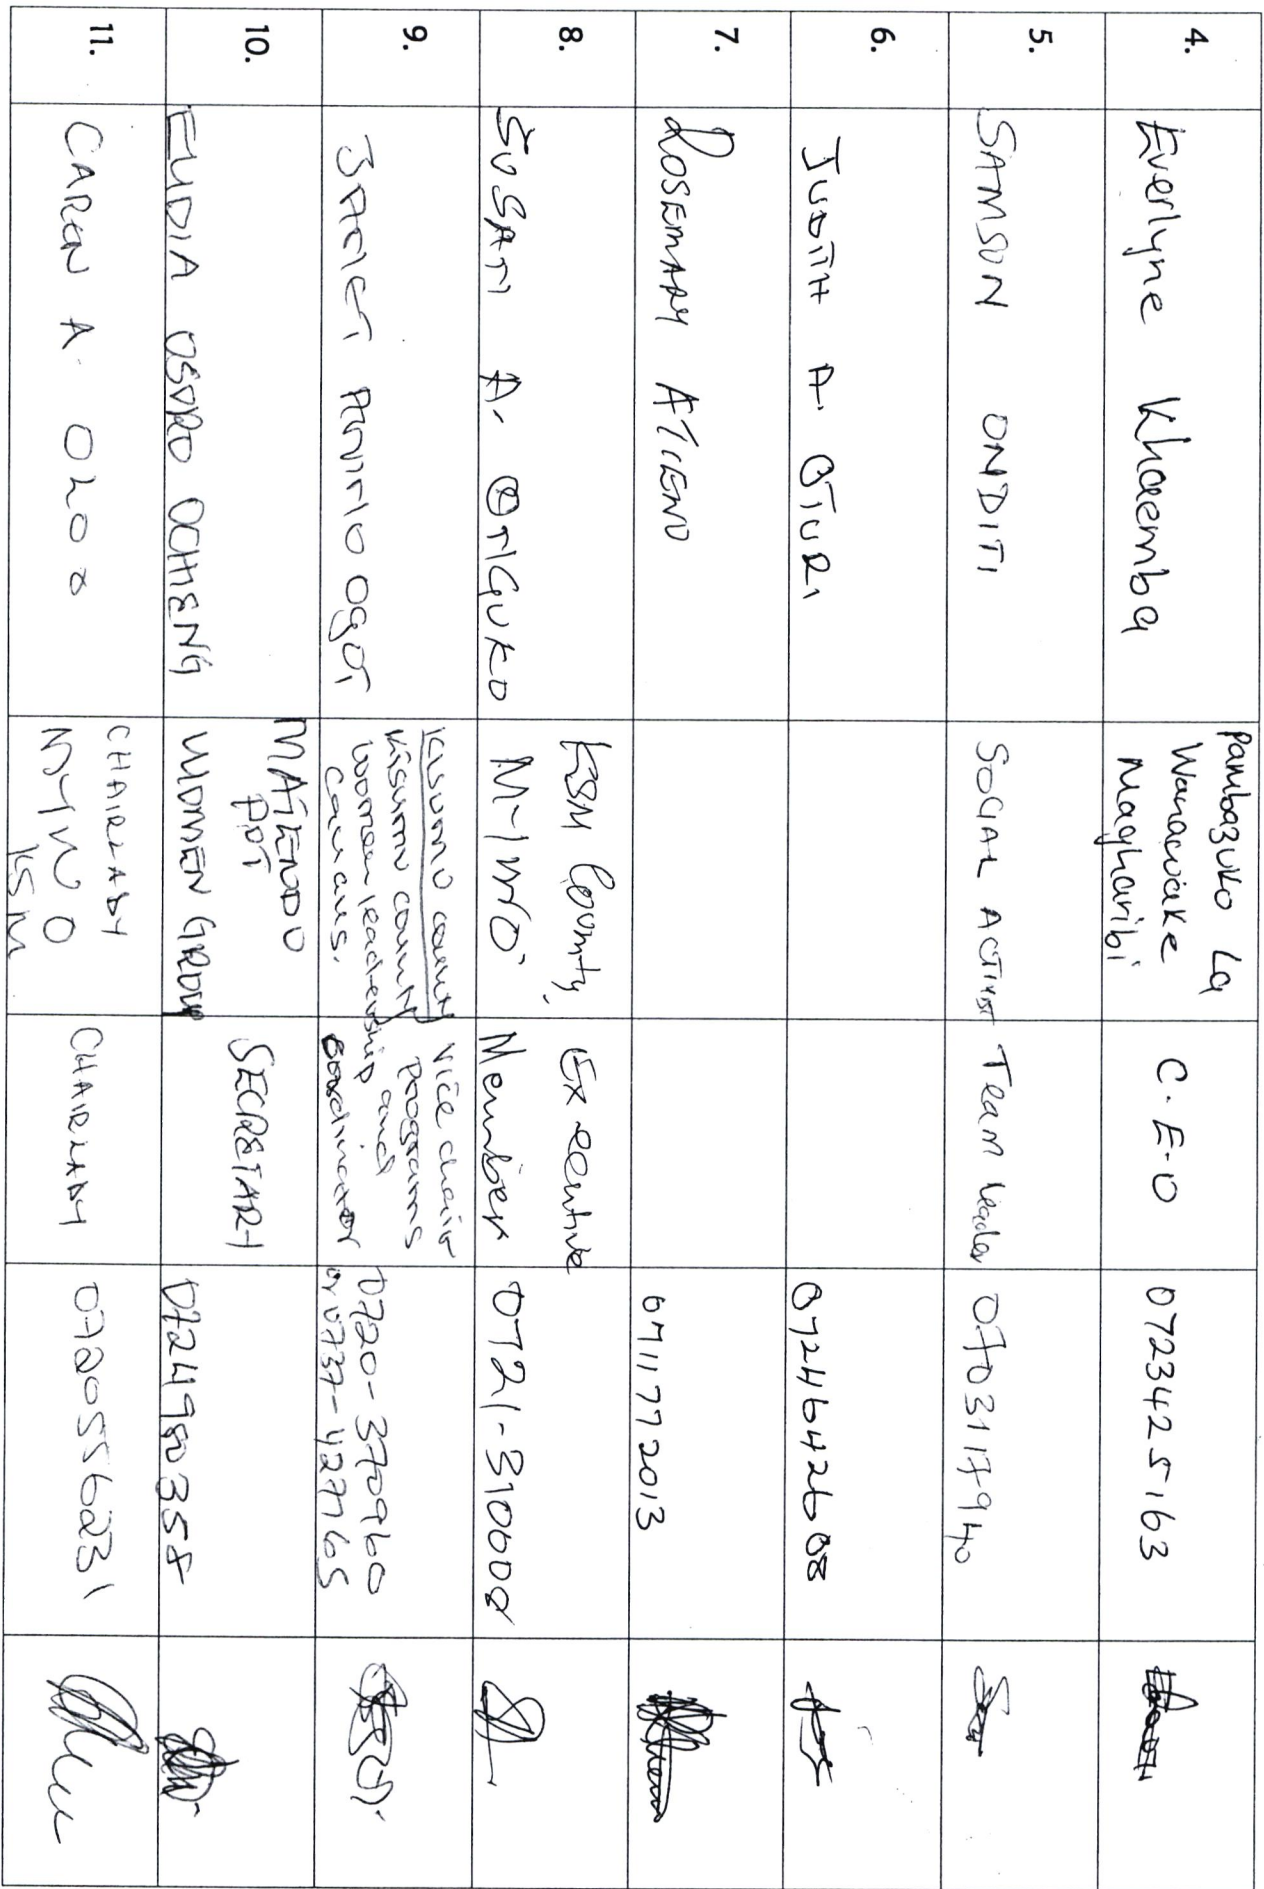 4.
Everlyne Khaemba
Pambazuko La
Wanawake
Magharibi
C.E.O
0723425163
5.
SAMSON ONDITI
SOCIAL ACTIVIST
Team leader
0703117940
6.
JUDITH A. OTURI
0724642608
7.
ROSEMARY ATIENO
8.
SUSAN A.
KSM County
M-YWO
Executive
Member
0721-310008
9.
JANET Ogot
Kisumu county
Kisumu county
women leadership
caucus.
Vice chair
Programs
and
coordinator
0720-370960
or 0737-427765
10.
ELIDIA OSORO OCHIENG
MATENDO
POT
WOMEN GROUP
SECRETARY
0724980358
11.
CAREN A. OLOO
CHAIRLADY
MYWO
KSM
CHAIRLADY
0720556231